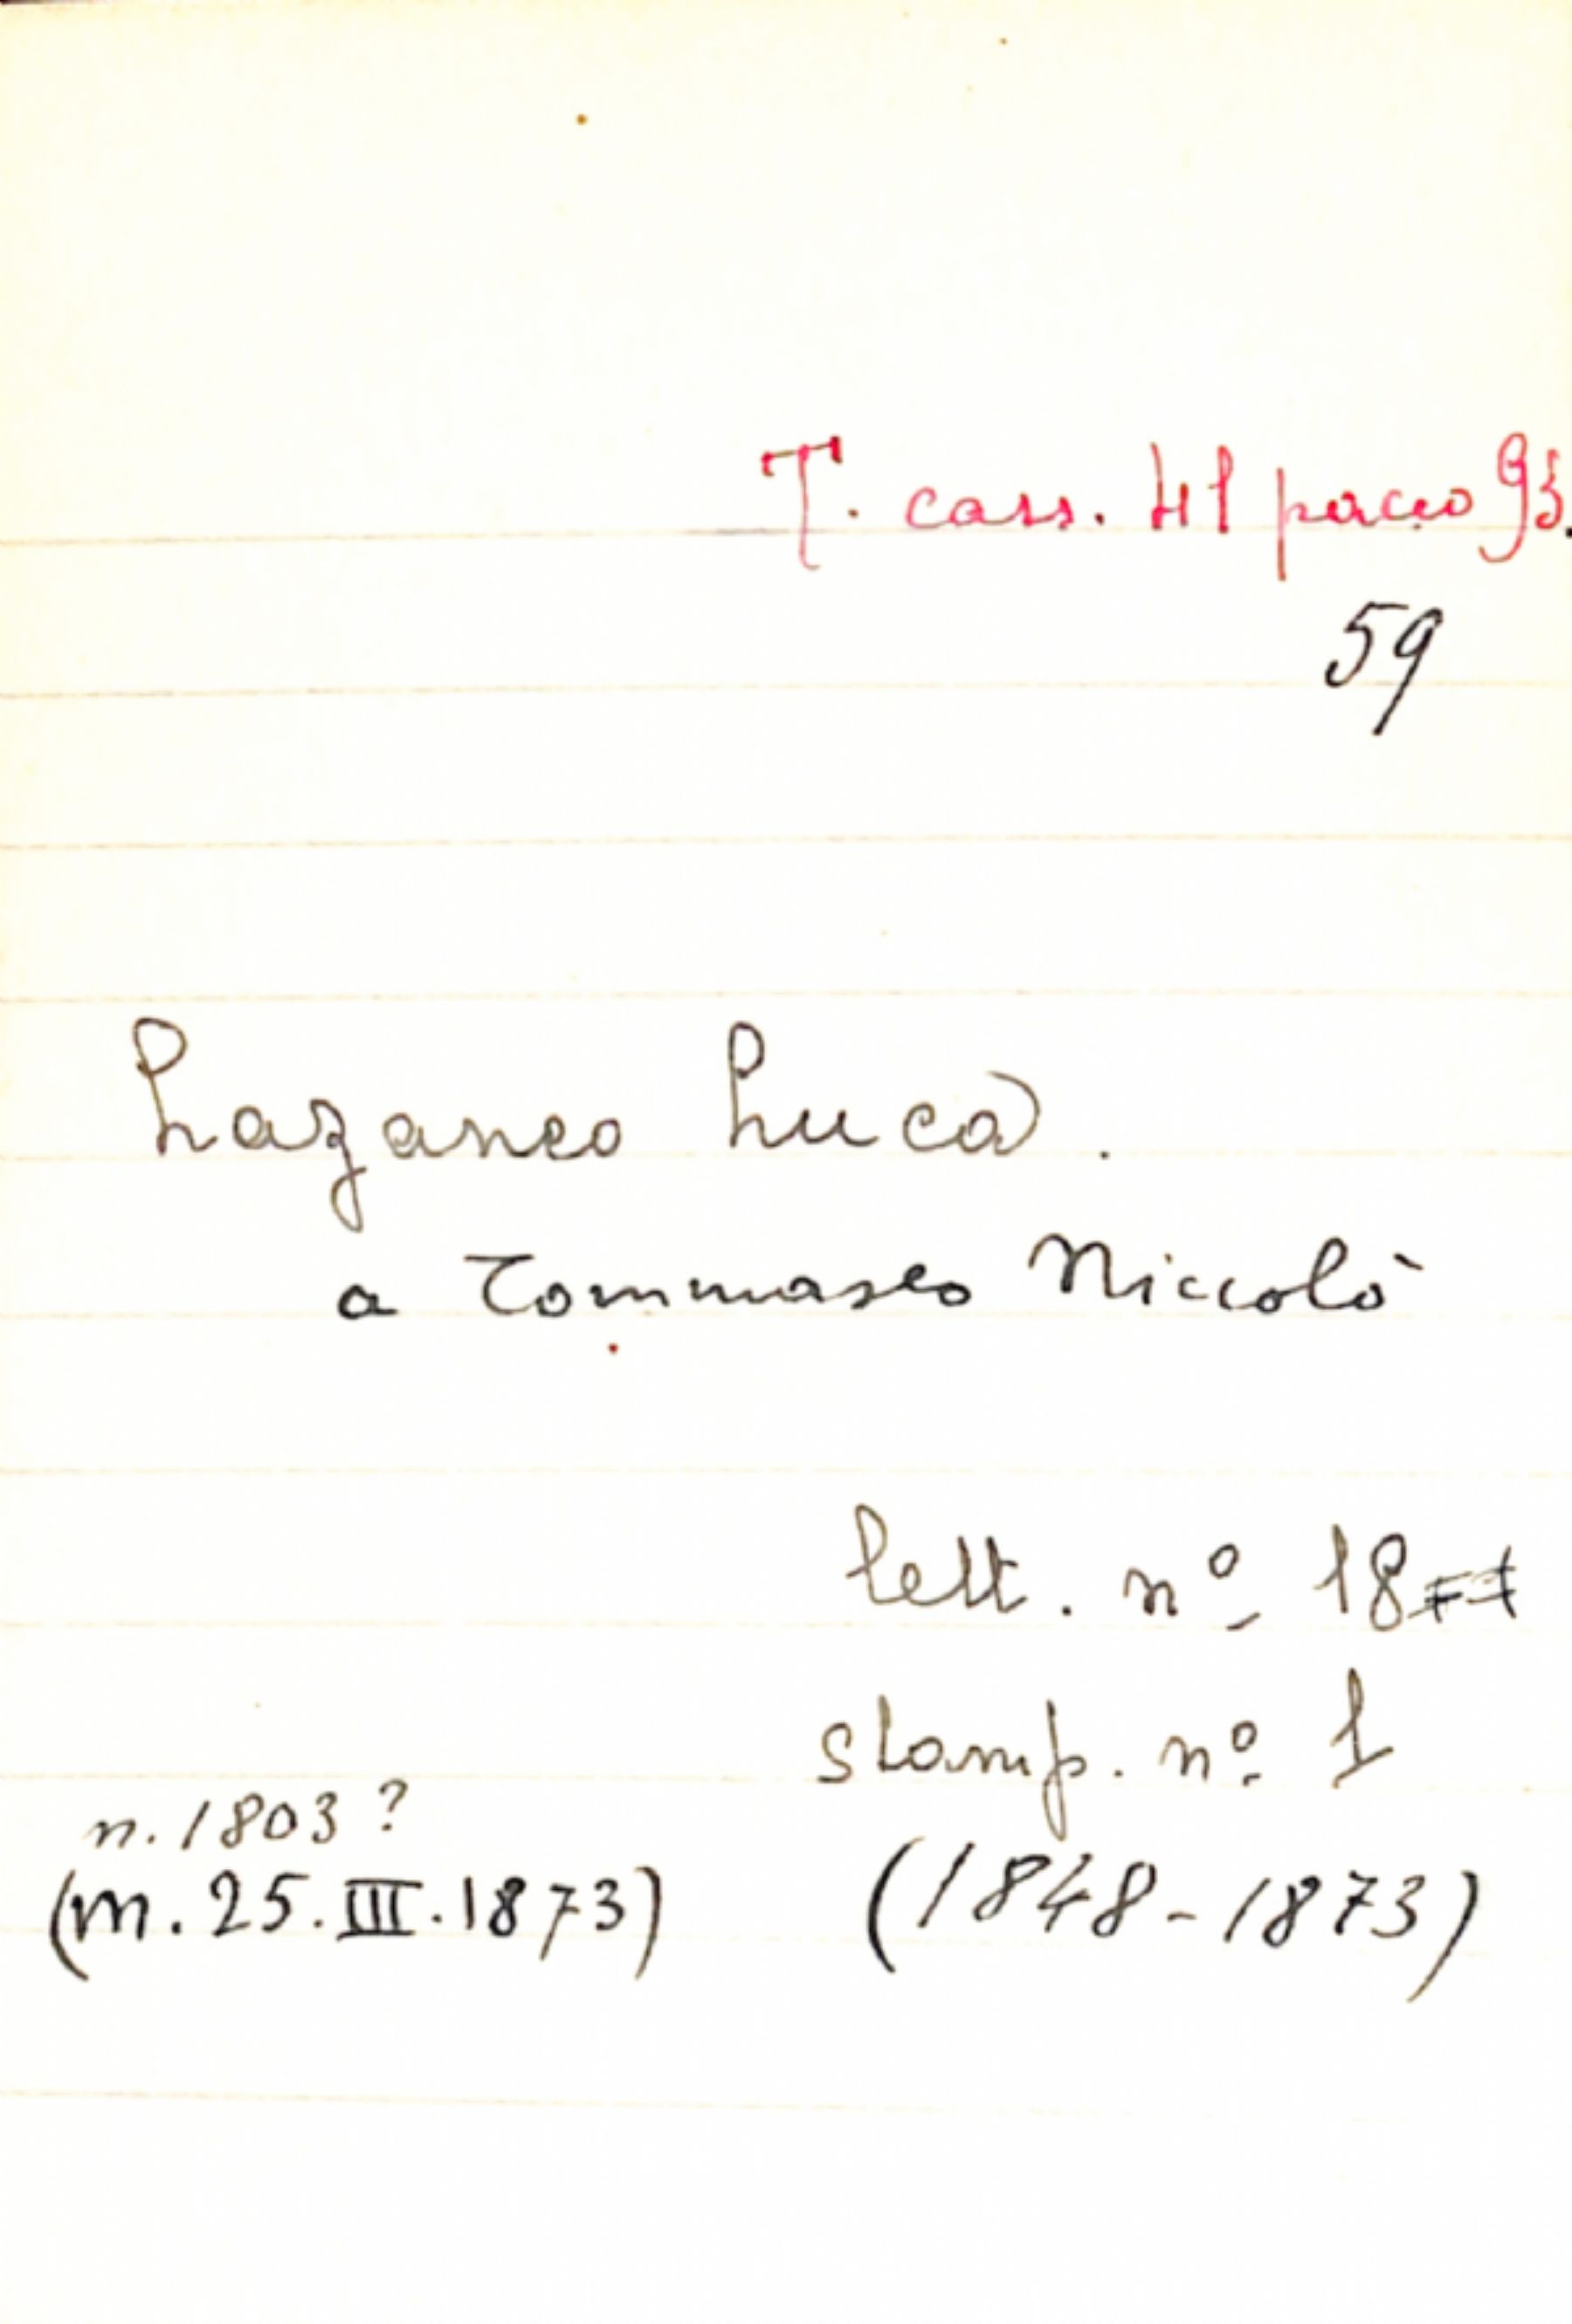 T. cass. 41 pacco 93.
59
Lazaneo Luca.
a Tommaseo Niccolò
lett. nº 18
stamp. nº 1
n. 1803?
(m. 25.III.1873) (1848-1873)